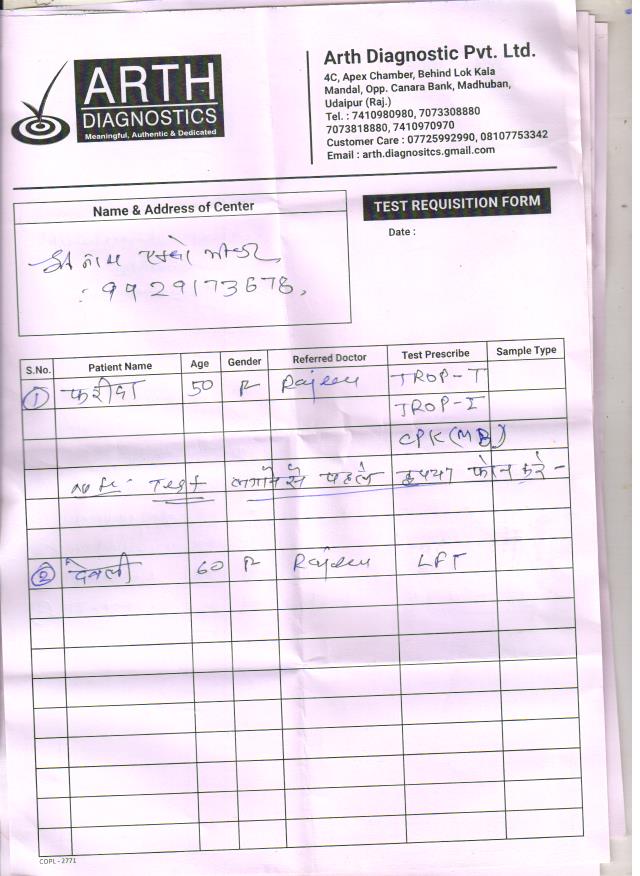 ARTH
DIAGNOSTICS
Meaningful, Authentic & Dedicated
Arth Diagnostic Pvt. Ltd.
4C, Apex Chamber, Behind Lok Kala
Mandal, Opp. Canara Bank, Madhuban,
Udaipur (Raj.)
Tel. : 7410980980, 7073308880
7073818880, 7410970970
Customer Care : 07725992990, 08107753342
Email : arth.diagnositcs.gmail.com
Name & Address of Center
TEST REQUISITION FORM
Date :
: 9929173678,
S.No. Patient Name Age Gender Referred Doctor Test Prescribe Sample Type
1 फरीदा 50 F TROP-T
TROP-I
CPK (MB)
Test लगाने से पहले कृपया फोन करे -
2 देवली 60 F LFT
CDPL-2771